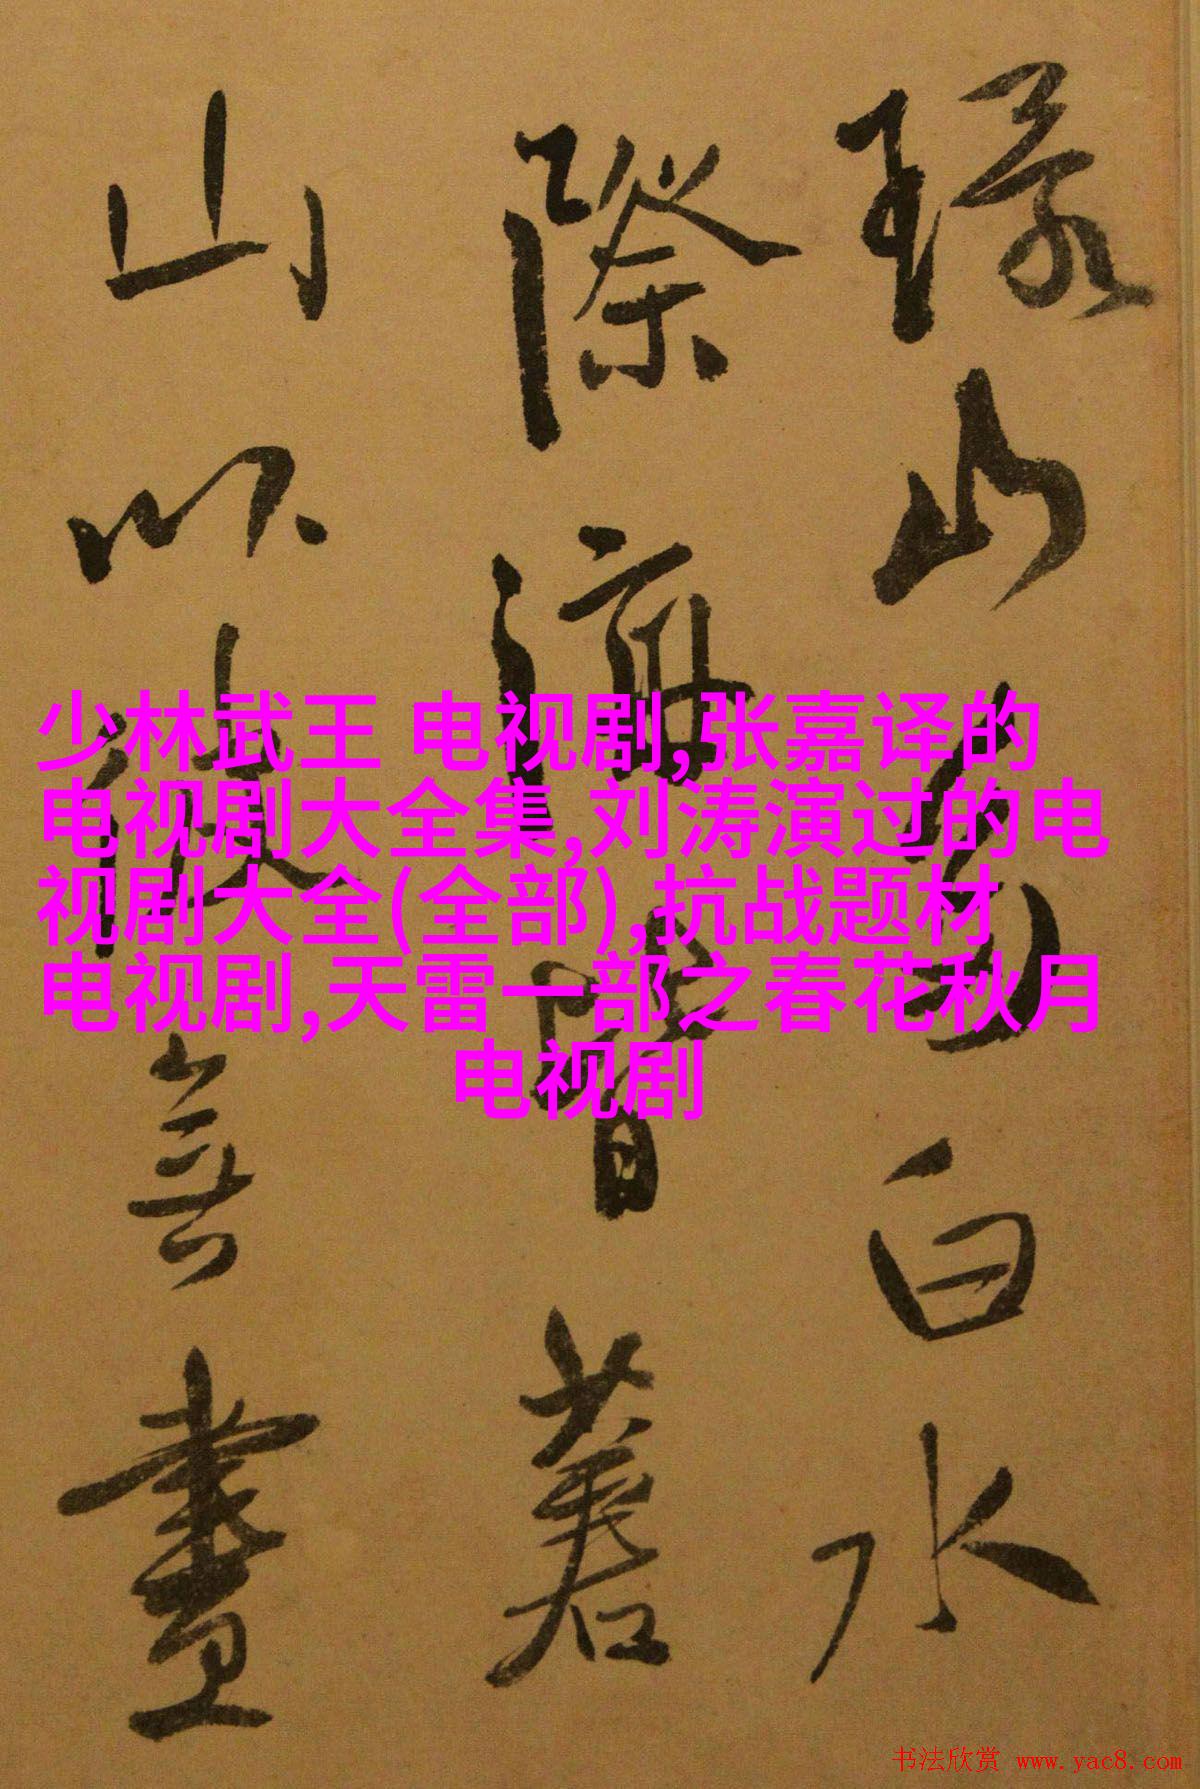 少林武王 电视剧,张嘉译的
电视剧大全集,刘涛演过的电
视剧大全(全部),抗战题材
电视剧,天雷一部之春花秋月
电视剧
山白水
際皆著
山以無畫
书法欣赏 www.yac8.com